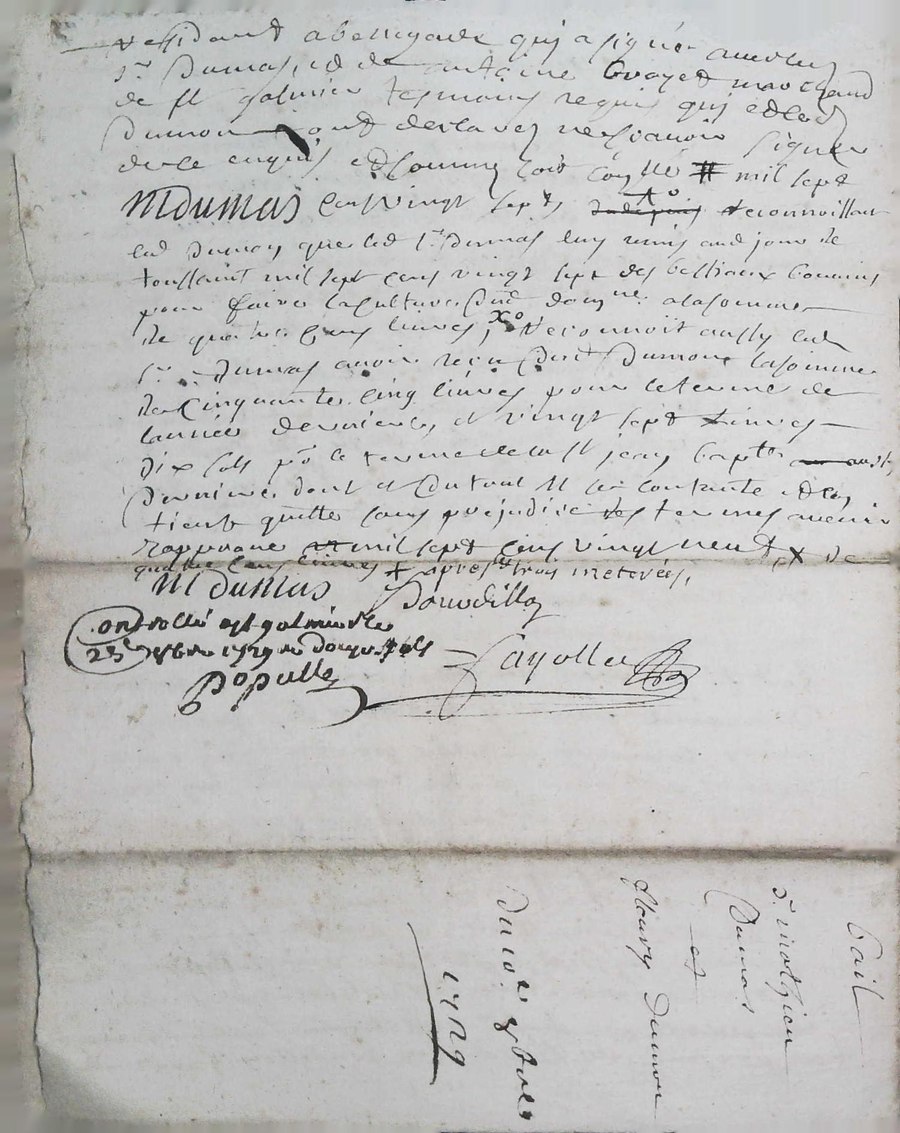 residant a bellegarde qui a signé avec led
Sr Dumas, et de antoine marchand
de st galmier tesmoins requis qui et led
Dumon ont declaré ne scavoir signer
de ce enquis et sommé # mil sept
MDumas cens vingt sept, reconnoissant
led Dumon, que led Sr Dumas luy remis au jour de
toussaint mil sept cens vingt sept des bestiaux bouvins
pour faire la culture dud domne a la somme
de quatre cens livres, xo reconnoit aussy led
Sr Dumas avoir reçu dud Dumon la somme
de Cinquante cinq livres pour le terme de
lannée derniere, et vingt sept livres
dix sols po le terme de la st jean bapte
derniere dont et du tout il se contante et led
tient quitte sans prejudice des termes avenir
mil sept cens vingt neuf x de
quatre cens livres + apres trois
MDumas
Controllé a st galmier le
23e 8bre 1729 sols
Populle
Fayolle
bail
Sr mathieu
Dumas
et
fleury Dumon
Du 20e 8bre
1729